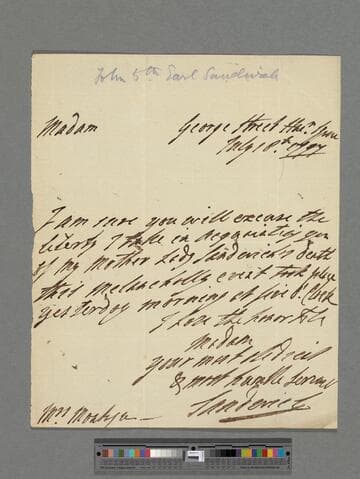 John 5th Earl Sandwich
Madam
George Street Har. Square
July 18th 1797
I am sure you will excuse the
liberty I take in acquainting you
of my Mother Lady Sandwich's death
this melancholly event took place
yesterday morning at five O'Clock
I have the honor to be
Madam
your most obedient
& most humble servant
Sandwich
Mrs Montagu